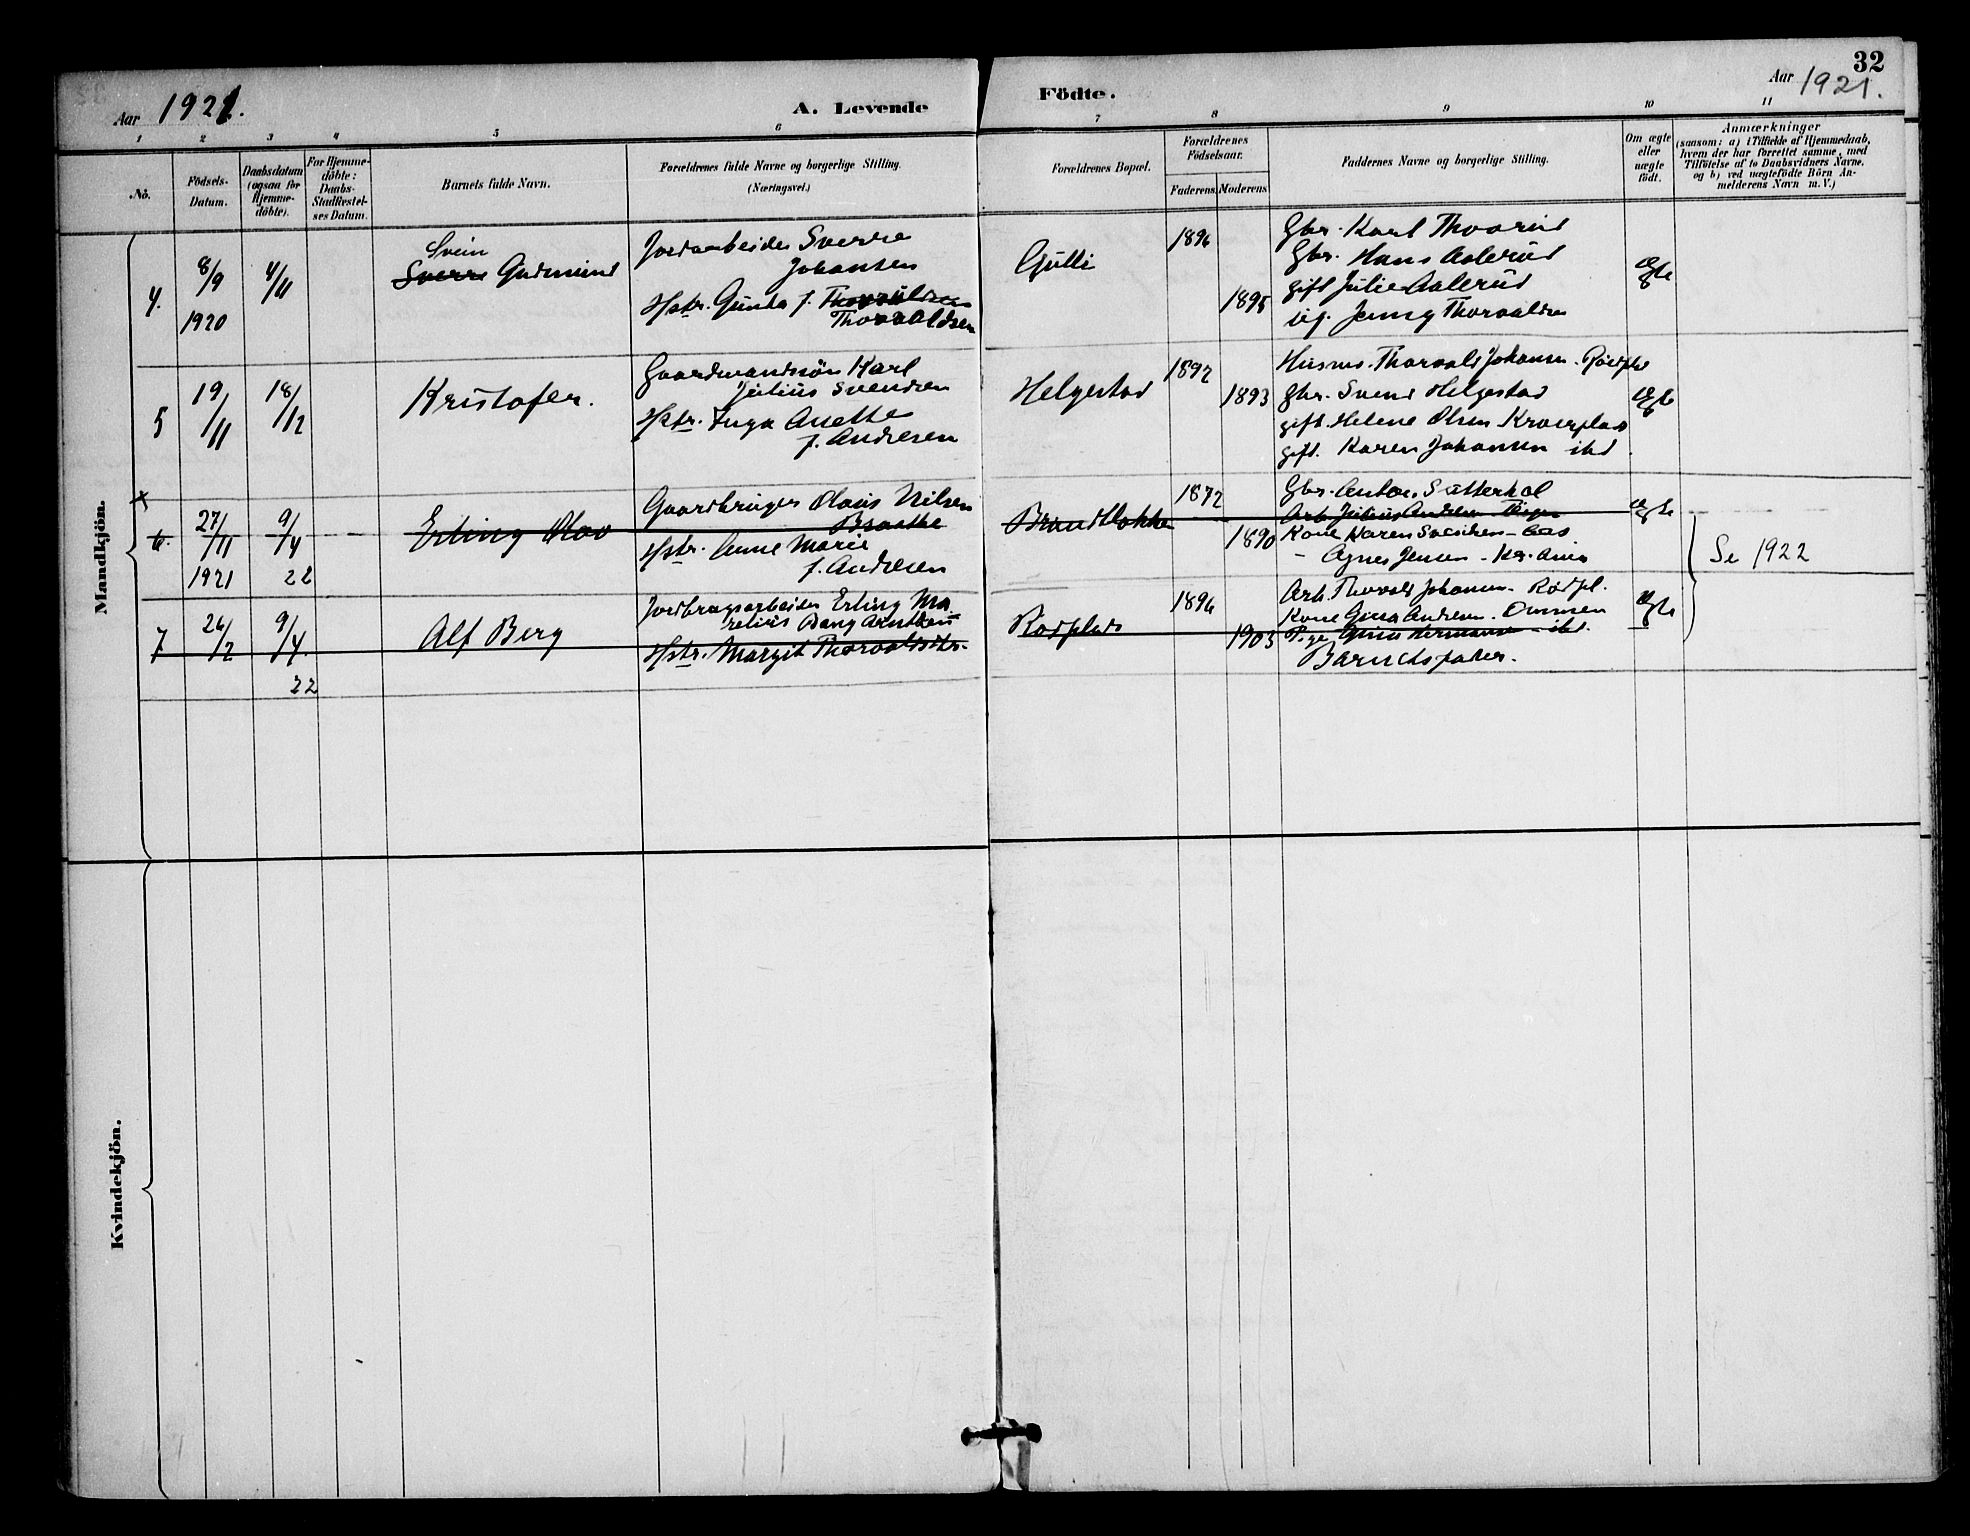 32
Aar 1921.
A. Levende
Födte.
Aar 1921.
1 2 3 4 5 6 7 8 9 10 11
No.
Födsels-
Datum.
Daabsdatum
(ogsaa for
Hjemme-
döbte).
For Hjemme-
döbte:
Daabs-
Stadfæstel-
ses Datum.
Barnets fulde Navn.
Forældrenes fulde Navne og borgerlige Stilling.
(Næringsvei.)
Forældrenes Bopæl.
Forældrenes
Födselsaar.
Faderens. Moderens.
Faddernes Navne og borgerlige Stilling.
Om ægte
eller
uægte
födt.
Anmærkninger
(saasom: a) i Tilfælde af Hjemmedaab,
hvem der har forrettet samme, med
Tilföielse af to Daabsvidners Navne,
og b) ved uægtefödte Börn An-
melderens Navn m. V.)
Mandkjön.
4.
8/9
1920
4/11
Svein
Sverre Gudmund
Jordarbeider Sverre
Johansen
Hstr. Gunda f.
Thorvaldsen
Gulli
1896
1895
Gbr. Karl Thorrud
Gbr. Hans Aalerud
gift Julie Aalerud
pig. Jenny Thorvaldsen
ægte
5
19/11
18/12
Kristofer.
Gaardmandssön Karl
Julius Svendsen
Hstr. Inga Anette
f. Andresen
Helgestad
1892
1893
Husm. Thorvald Johansen. Rödpls
Gbr. Svend Helgestad
gift. Helene Olsen Kroerplads
gift. Karen Johansen ibd.
ægte
x
6.
27/11
1921
9/4
22
Erling Olav
Gaardbruger Olaus Nilsen
Braathe
Hstr. Anne Marie
f. Andresen
Brandtlokka
1872
1890
Gbr. Anton Sætterhol
Arb. Julius Andresen
Kone Karen
- Agnes Jensen - Kr.
ægte
Se 1922
7
26/2
9/4.
22
Alf Berg
Jordbrugsarbeider Erling Ma
relius Bang Arntsen
Hstr. Margit Thorvaldsdtr.
Rödplads
1896
1903
Arb. Thorvald Johansen. Rödpl.
Kone Gina Andresen.
Pige Hermansen - ibd.
Barnets fader.
ægte
Kvindekjön.